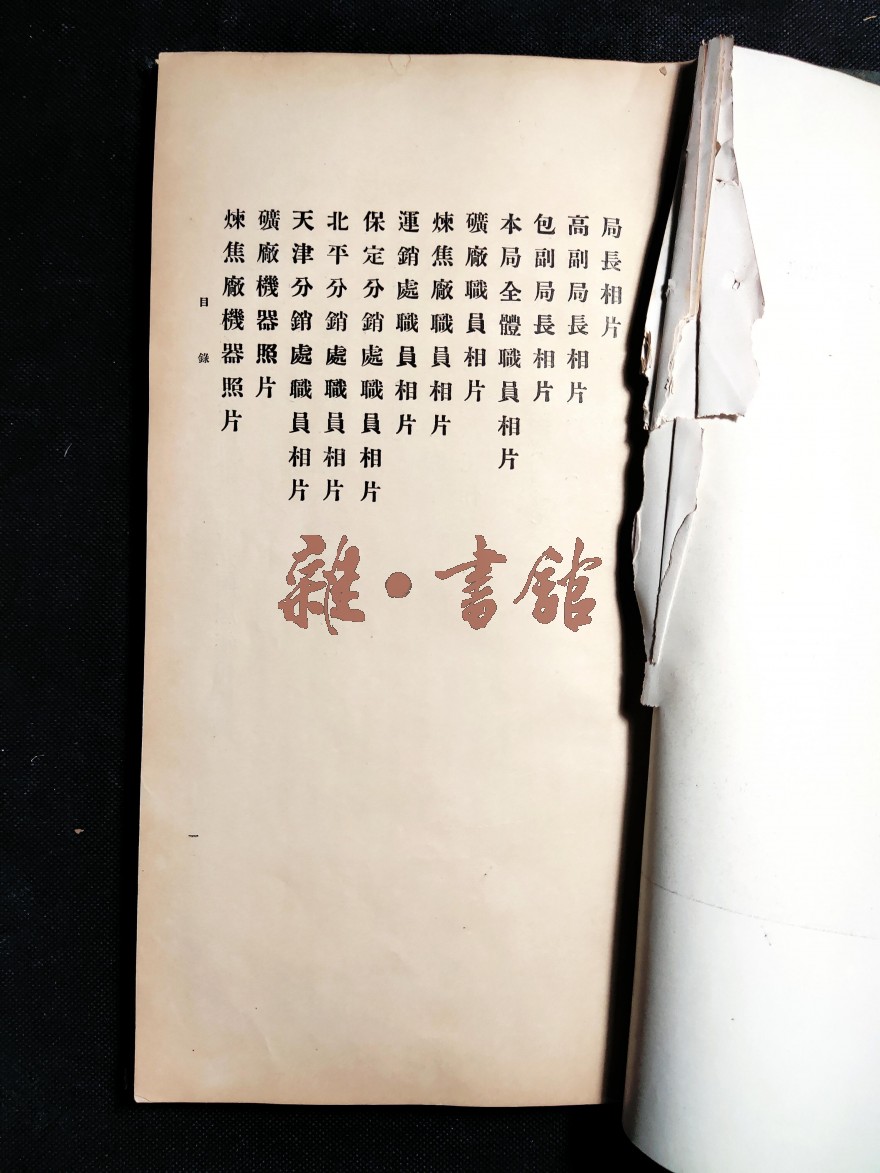 局長相片
高副局長相片
包副局長相片
本局全體職員相片
礦廠職員相片
煉焦廠職員相片
運銷處職員相片
保定分銷處職員相片
北平分銷處職員相片
天津分銷處職員相片
礦廠機器照片
煉焦廠機器照片
目錄
一
雜·書館